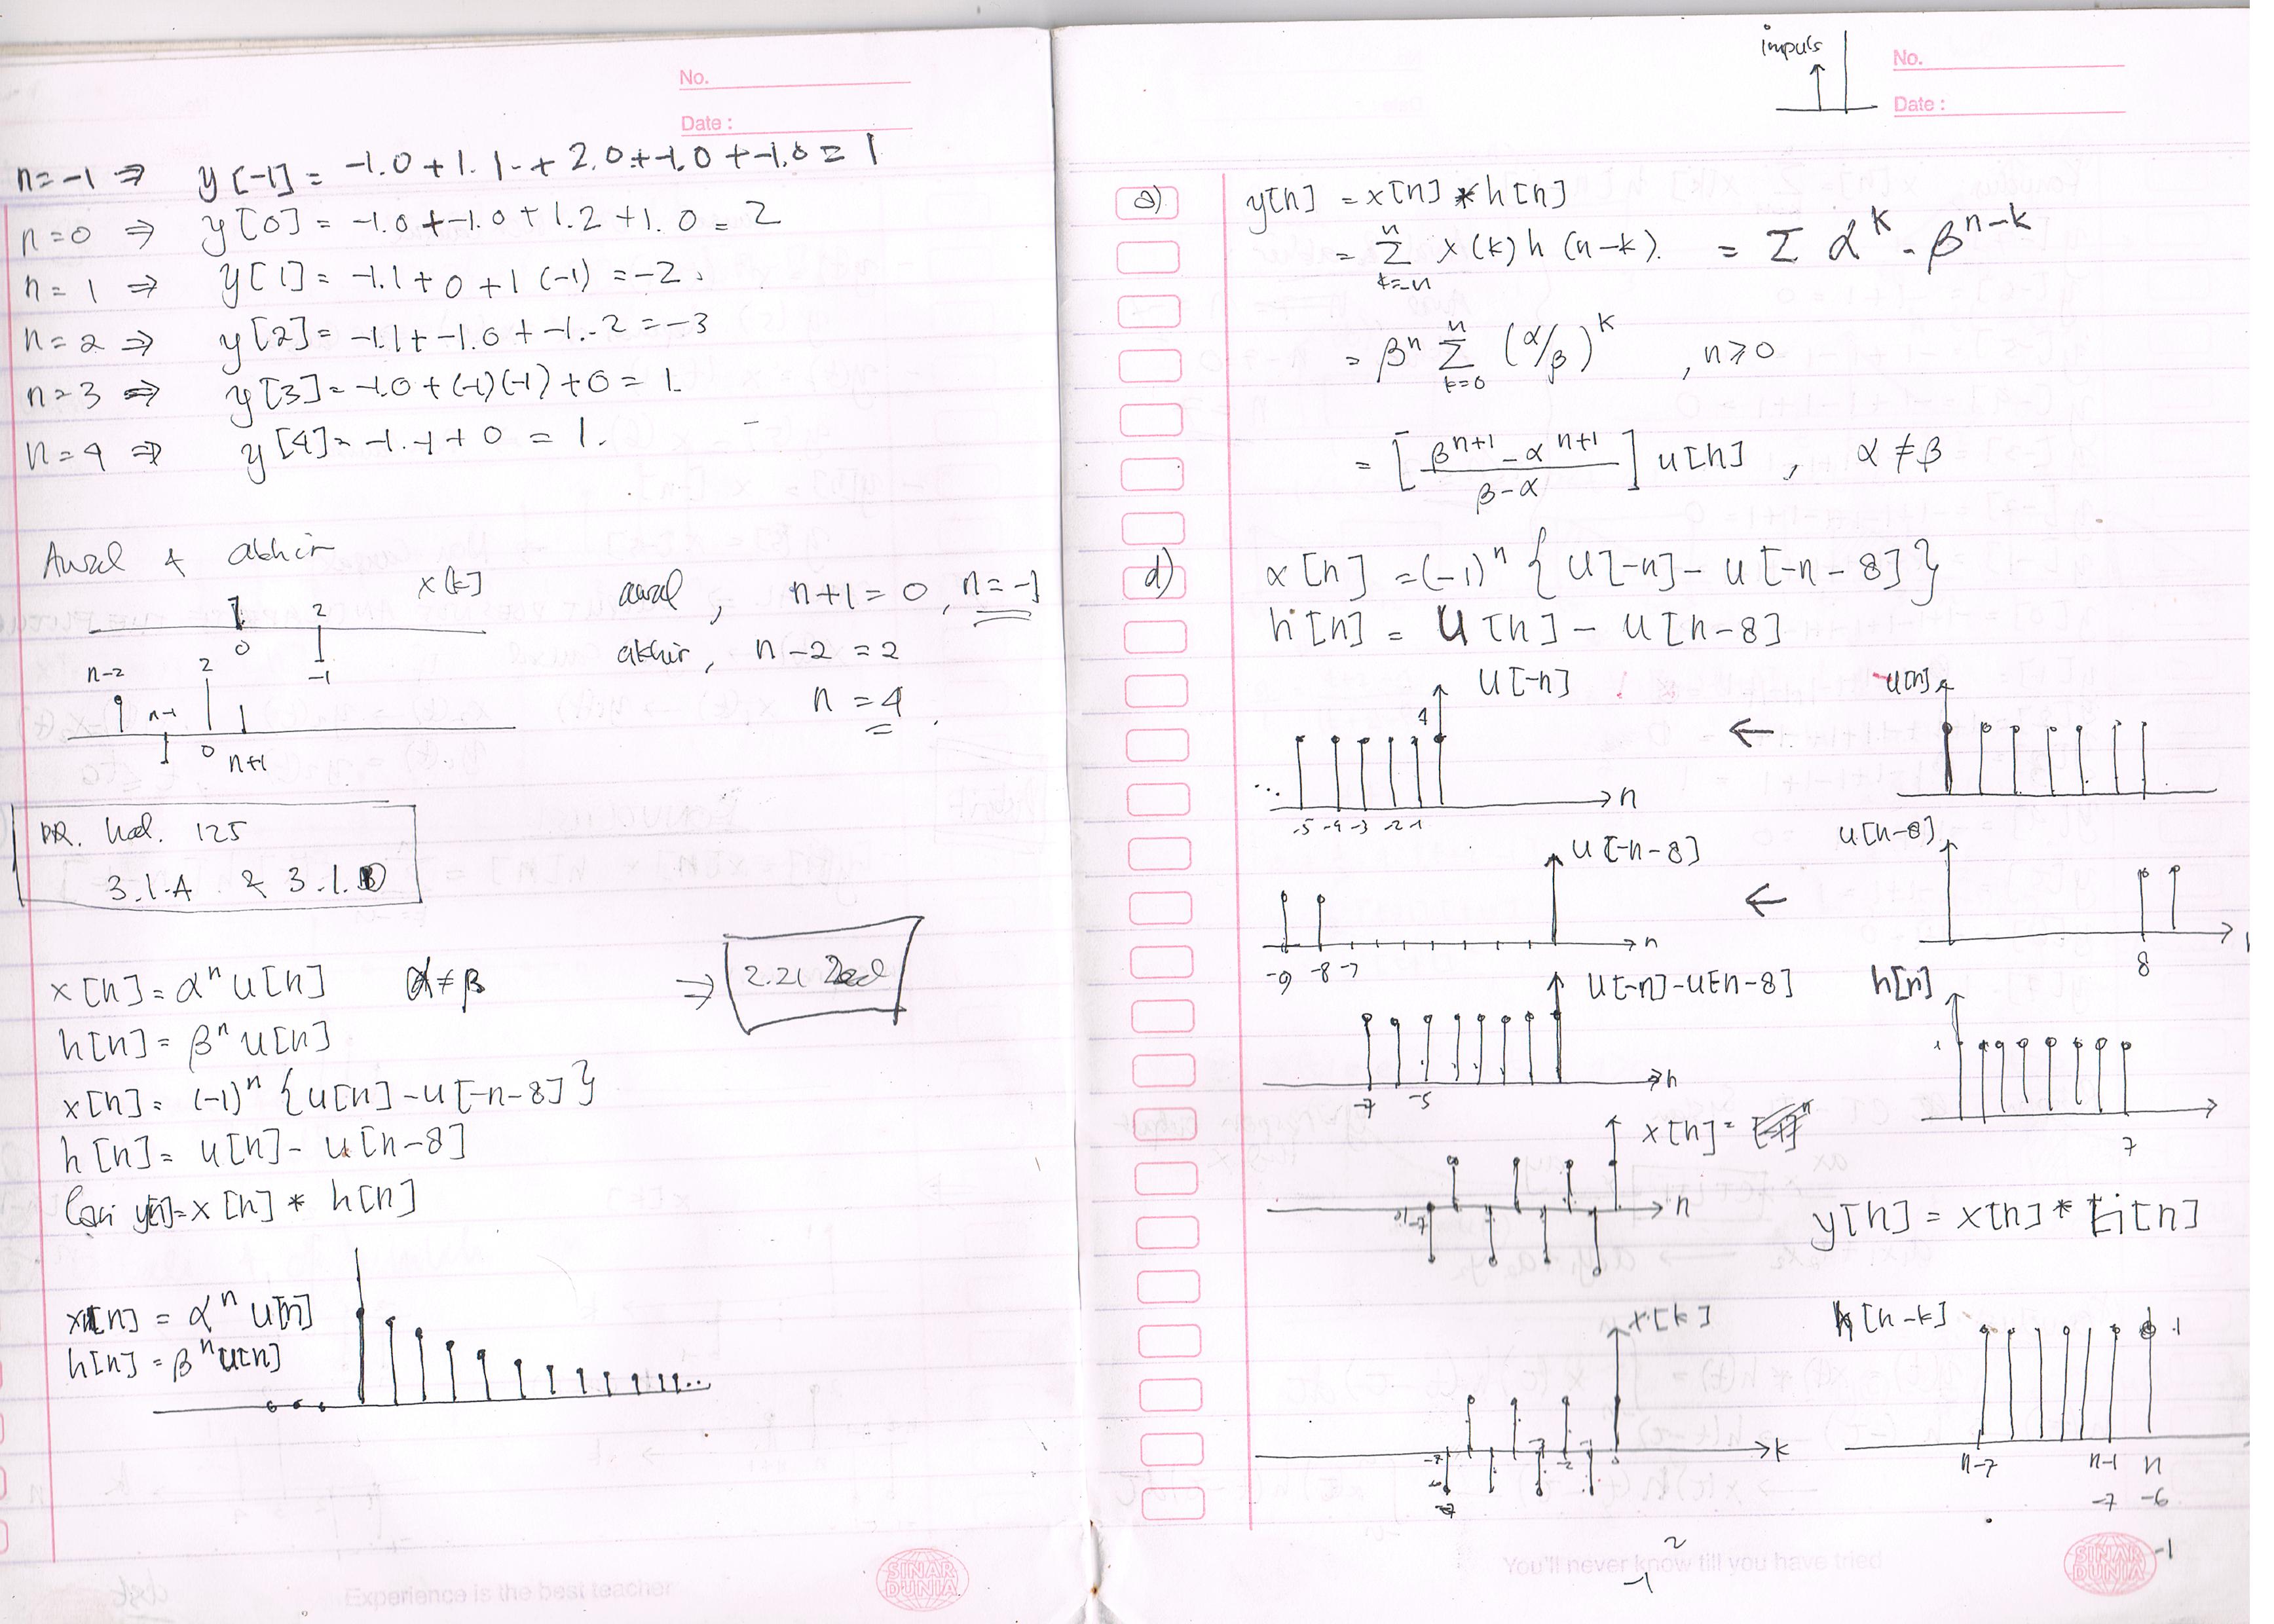 No.
Date :
n=-1 ⇒ y[-1] = -1.0+1.1.+2.0+-1.0+-1.0=1
n=0 ⇒ y[0] = -1.0+-1.0+1.2+1.0=2
n=1 ⇒ y[1] = -1.1+0+1(-1)=-2.
n=2 ⇒ y[2] = -1.1+-1.0+-1.-2=-3
n=3 ⇒ y[3]=-1.0+(-1)(-1)+0=1.
n=4 ⇒ y[4]=-1.-1+0=1.
Awal & akhir
x[k]
1 2
0 -1
n-2 n-1 2 0 n+1
awal, n+1=0, n=-1
akhir, n-2=2
n=4
PR. hal. 125
3.1.A & 3.1.D
x[n]=α^n u[n] α≠β
⇒ 2.21
h[n]=β^n u[n]
x[n]=(-1)^n {u[n]-u[-n-8]}
h[n]=u[n]-u[n-8]
Cari y[n]=x[n]*h[n]
x[n]=α^n u[n]
h[n]=β^n u[n]
Experience is the best teacher
SINAR DUNIA
impuls
No.
Date :
a) y[n]=x[n]*h[n]
= Σ x(k)h(n-k). = Σ α^k . β^n-k
= β^n Σ k=0 n (α/β)^k , n≥0
= [β^n+1 - α^n+1 / β-α] u[n] , α≠β
d) x[n]=(-1)^n {u[-n]-u[-n-8]}
h[n]=u[n]-u[n-8]
u[-n] ← u[n]
1
... -5 -4 -3 -2 -1 n
u[-n-8] ← u[n-8]
-9 -8 -7 n 8
u[-n]-u[-n-8] h[n]
-7 -5 n 1 7
x[n]=
-7 n
y[n]=x[n]*h[n]
x[k] h[n-k] 1
-7 -2 -1 0 k
n-7 n-1 n
-7 -6
2
-1
-1
You'll never know till you have tried
SINAR DUNIA